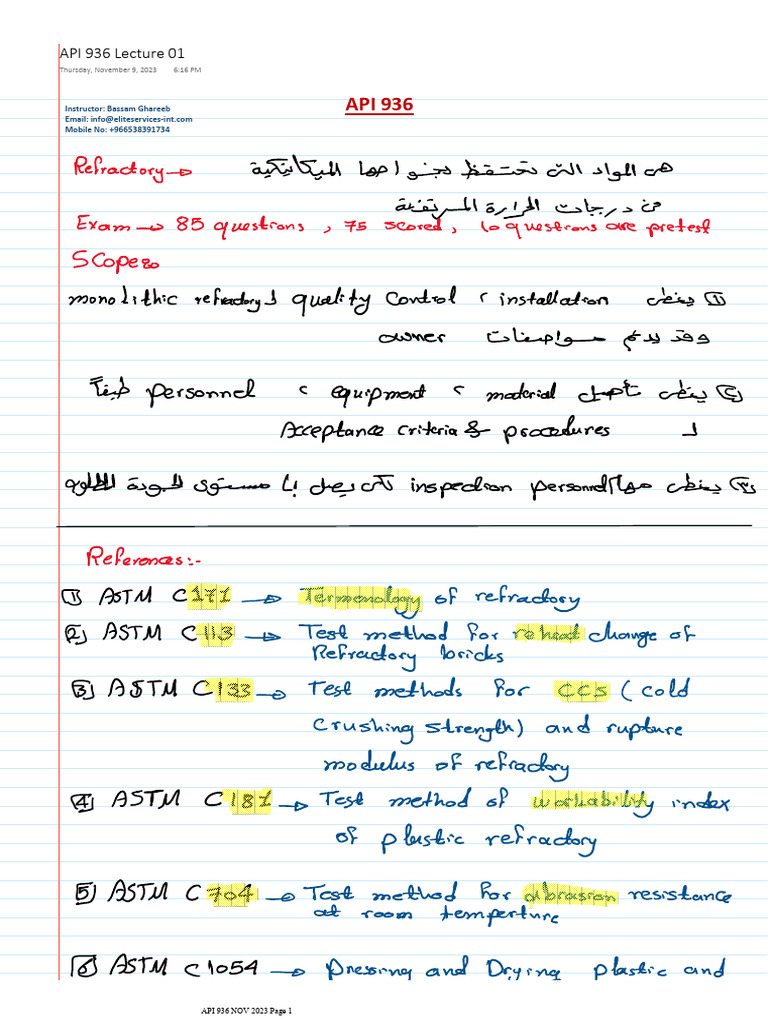 API 936 Lecture 01
Thursday, November 9, 2023 6:16 PM
API 936
Instructor: Bassam Ghareeb
Email: info@eliteservices-int.com
Mobile No: +966538391734
Refractory → هى المواد التى تحتفظ بخواصها الميكانيكية
فى درجات الحرارة المرتفعة
Exam → 85 questions , 75 scored, 10 questions are pretest
Scope:
① يغطى installation ، quality control لـ monolithic refractory
وقد يدعم مواصفات owner
② يغطى تأهيل material ، equipment ، personnel طبقاً
لـ Acceptance criteria & procedures
③ يغطى مهام inspection personnel لكى يصل لـ مستوى الجودة المطلوبه
References:-
① ASTM C171 → Termonology of refractory
② ASTM C113 → Test method for reheat change of
Refractory bricks
③ ASTM C133 → Test methods for CCS (cold
crushing strength) and rupture
modulus of refractory
④ ASTM C181 → Test method of workability index
of plastic refractory
⑤ ASTM C704 → Test method for abrasion resistance
at room temperture
⑥ ASTM C1054 → Pressing and Drying plastic and
API 936 NOV 2023 Page 1